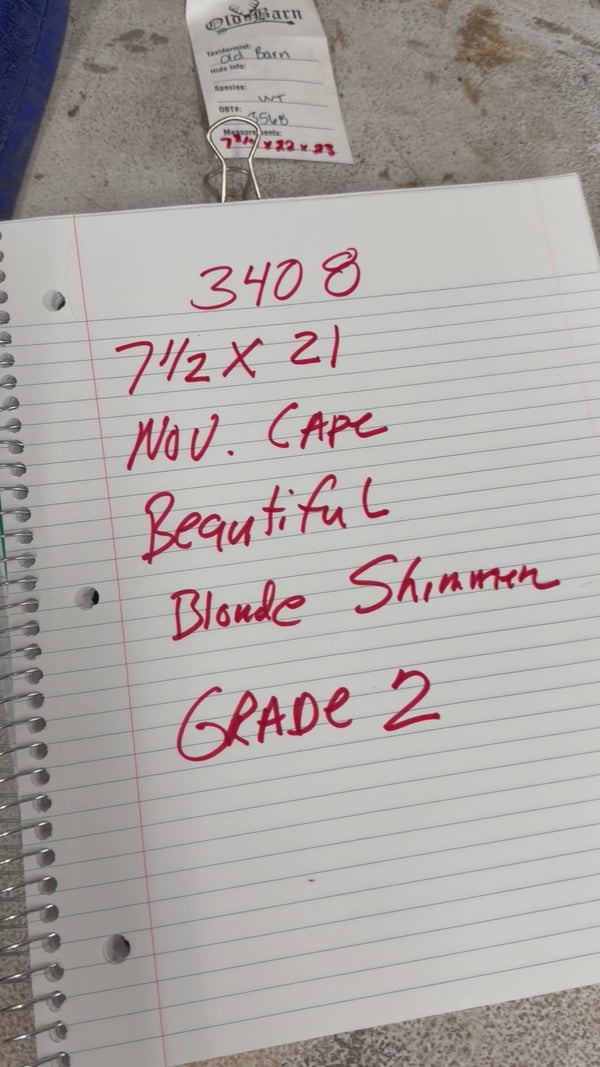 Old Barn
Taxidermist:
Old Barn
Hide Info:
Species:
WT
OBT#:
3568
Measurements:
x 22 x 23
3408
7 1/2 X 21
NOV. CAPE
Beautiful
Blonde Shimmer
GRADE 2